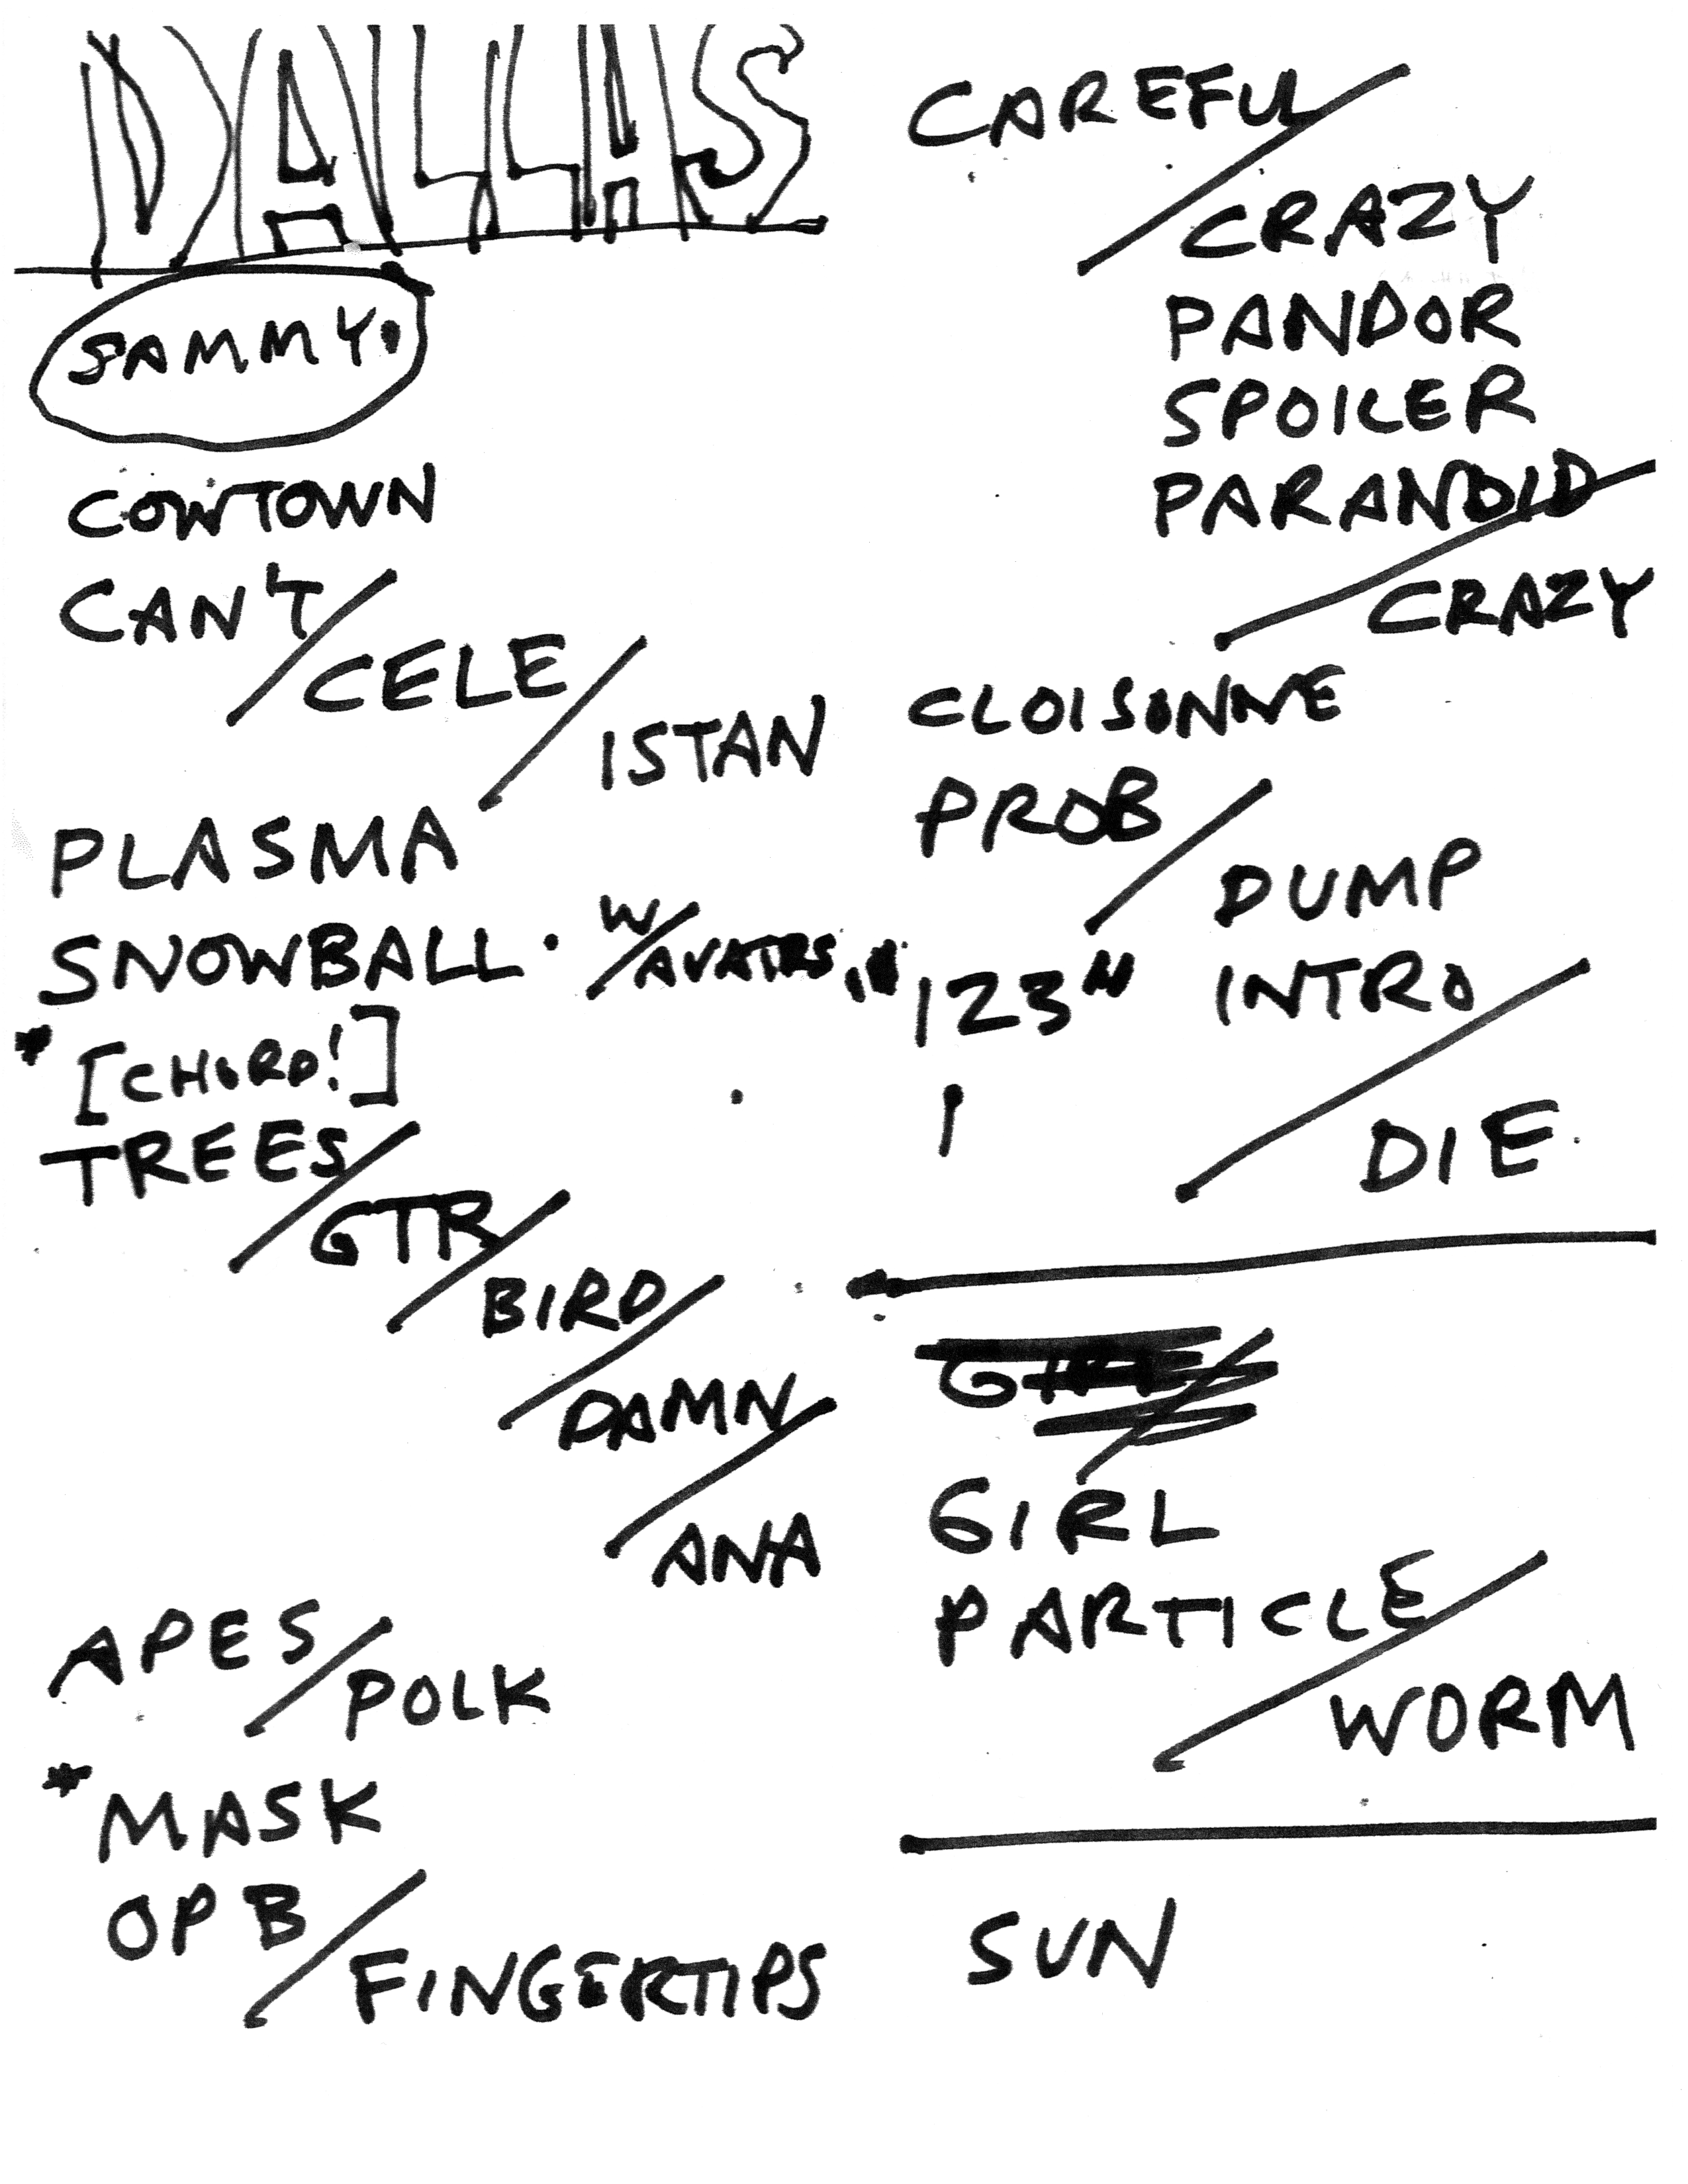 DALLAS
SAMMY.
COWTOWN
CAN'T/
CELE/
ISTAN
PLASMA
SNOWBALL. W/AVATRS
* [CHORD!]
TREES/
GTR/
BIRD/
DAMN/
ANA
APES/
POLK
* MASK
OPB/
FINGERTIPS
CAREFUL/
CRAZY
PANDOR
SPOILER
PARANOID/
CRAZY
CLOISONNE
PROB/
DUMP
"123" INTRO/
DIE.
GIRL
PARTICLE/
WORM
SUN